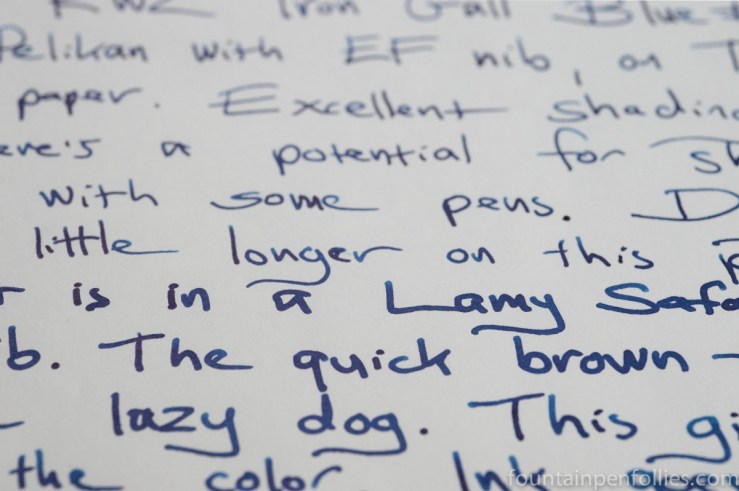 KWZ Iron Gall Blue
Pelikan with EF nib, on T
paper. Excellent shading
ere's a potential for sh
with some pens. D
little longer on this p
r is in a Lamy Safa
b. The quick brown -
lazy dog. This gi
the color Ink
fountainpenfollies.com